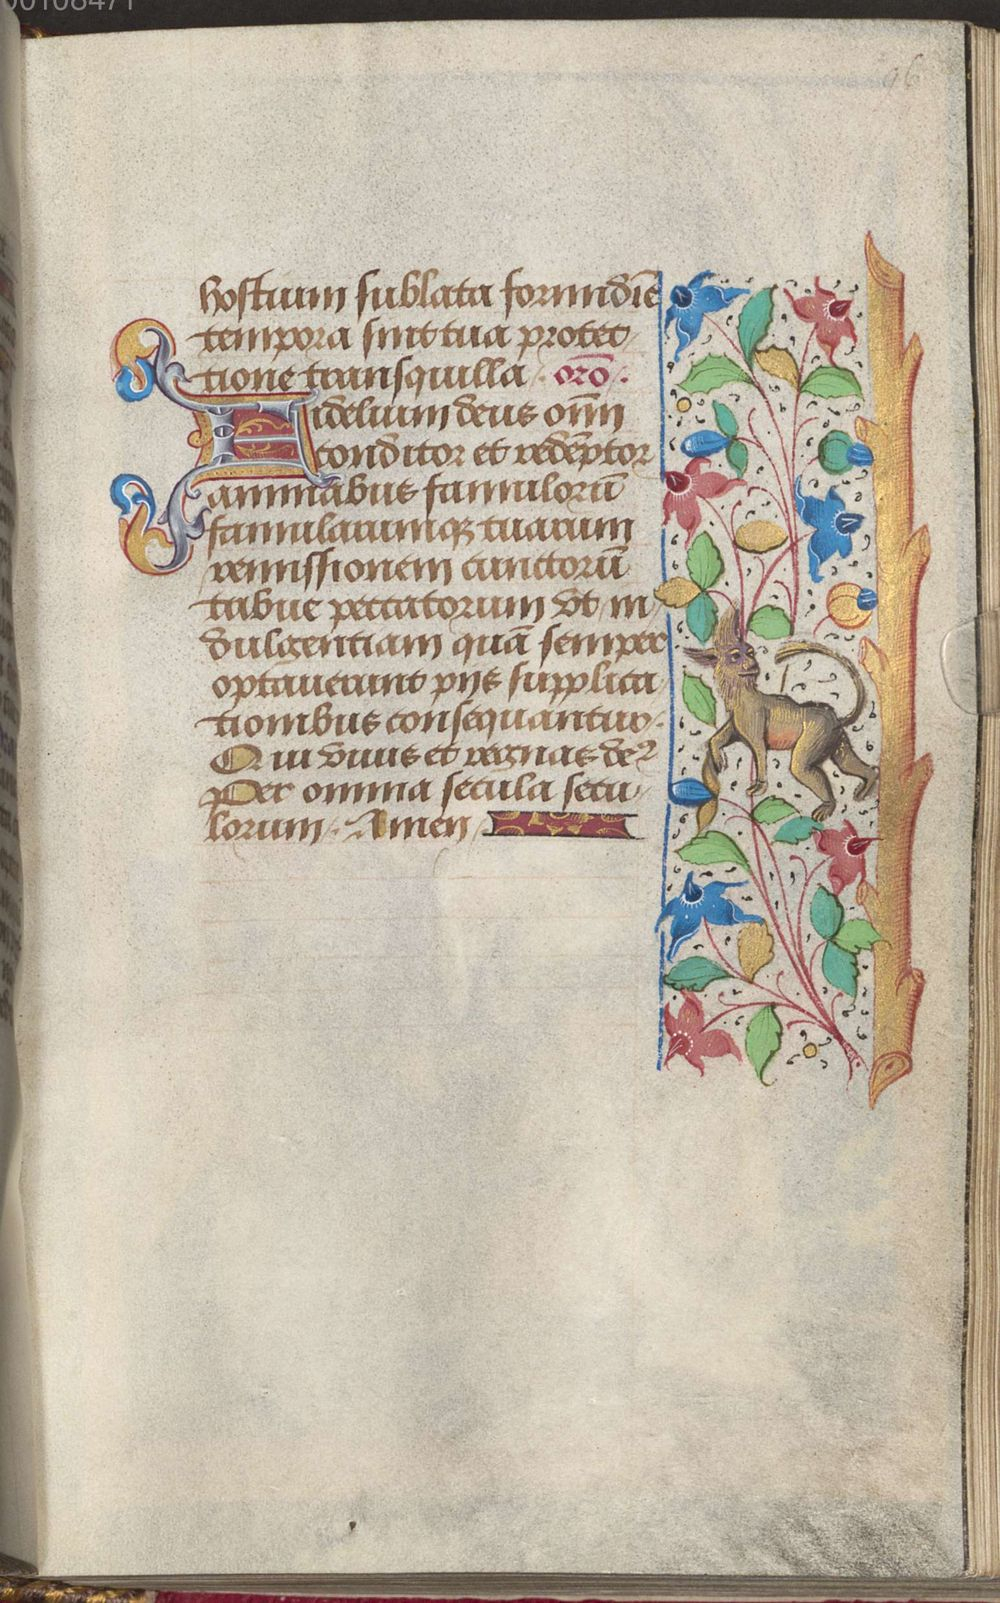 00108471
96
hostium sublata formidīe
tempora sint tua protec
tione transquilla . oro .
Fidelium deus om̄
conditor et redēptor
animabus famulorū
famularumq; tuarum
remissionem cunctorū
tribue peccatorum vt in
dulgentiam quā semper
optauerunt pijs supplica
tionibus consequantur.
Qui viuis et regnas de⁹
Per omnia secula secu
lorum . Amen